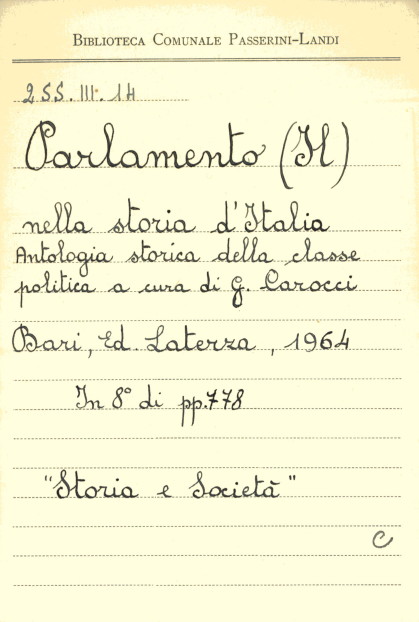 BIBLIOTECA COMUNALE PASSERINI-LANDI
2SS.III.14
Parlamento (Il)
nella storia d'Italia
Antologia storica della classe
politica a cura di G. Carocci
Bari, Ed. Laterza, 1964
In 8° di pp.778
"Storia e Società"
C